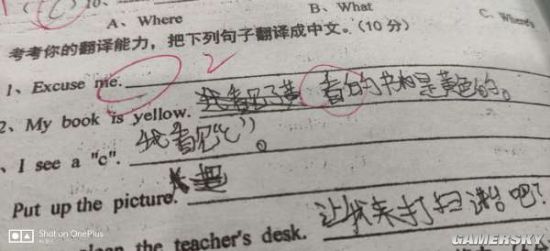 A、Where B、What C、Where's
考考你的翻译能力，把下列句子翻译成中文。(10分)
1、Excuse me.
2
2、My book is yellow. 的书和是黄色的。
、I see a "c". 我看见“c”。
Put up the picture. 把
让我来打扫讲台吧？
the teacher's desk.
Shot on OnePlus
GAMERSKY